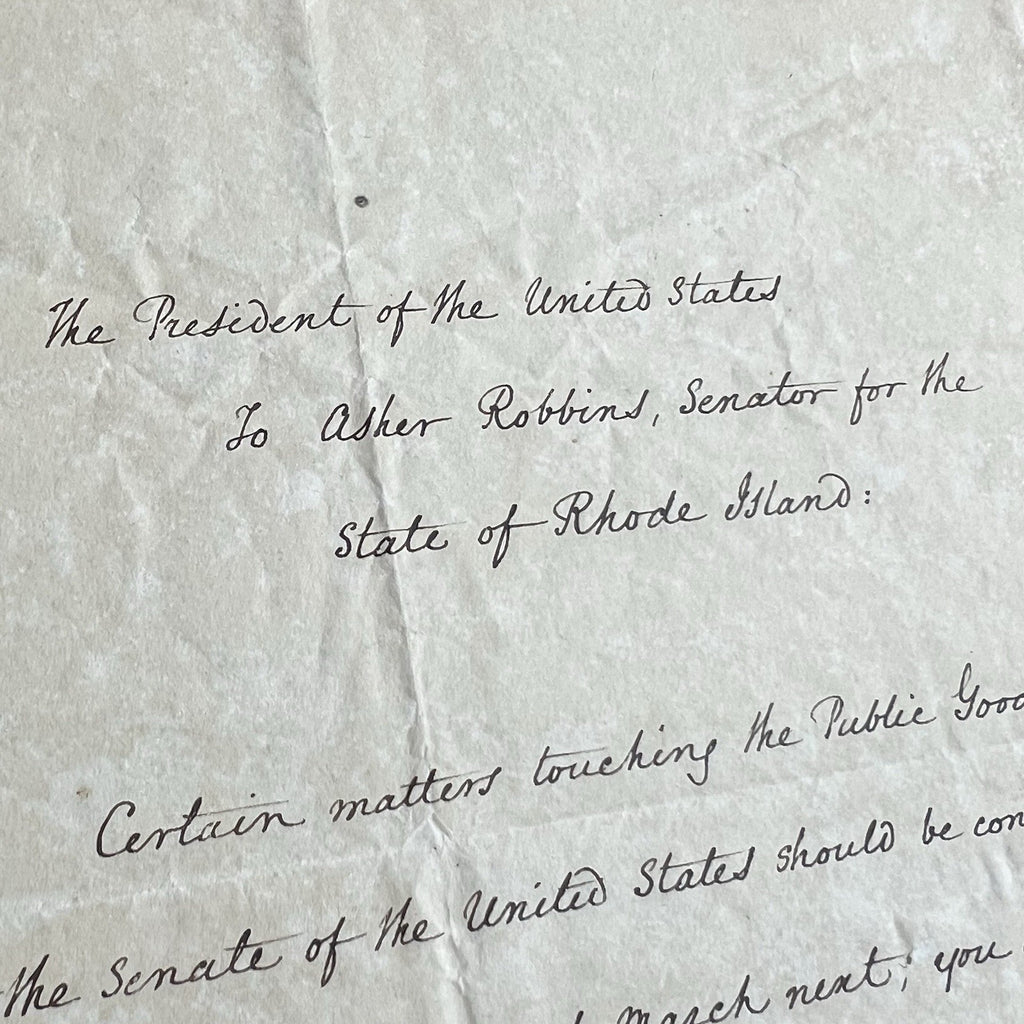 The President of the United States
To Asher Robbins, Senator for the
State of Rhode Island:
Certain matters touching the Public Good
the Senate of the United States should be con
March next, you